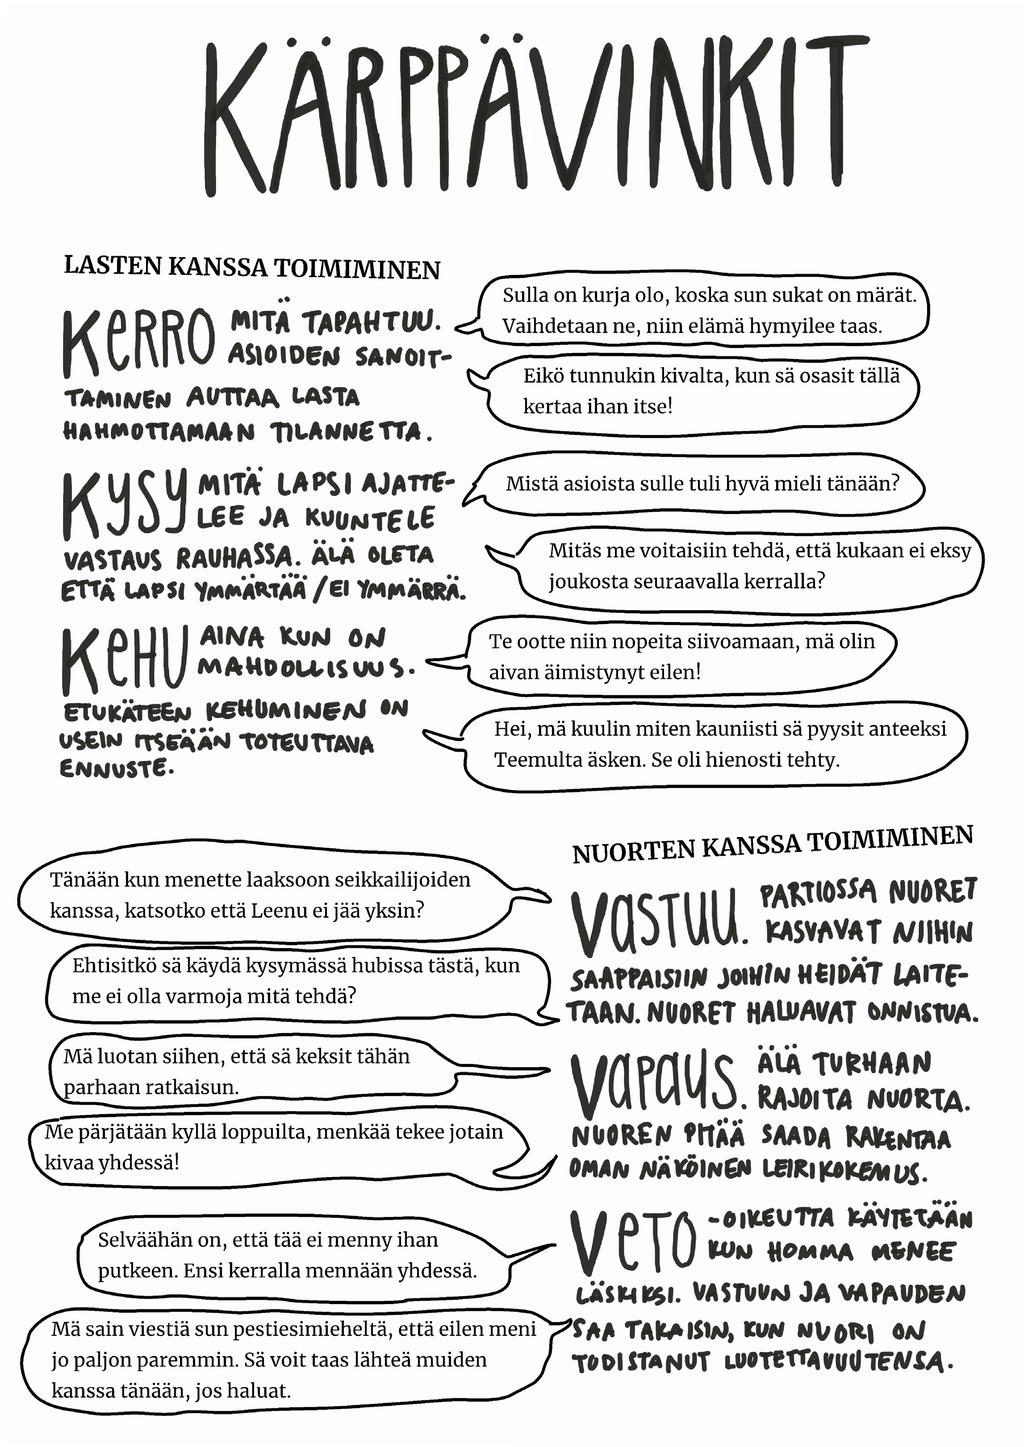 KÄRPPÄVINKIT
LASTEN KANSSA TOIMIMINEN
KERRO MITÄ TAPAHTUU.
ASIOIDEN SANOIT-
TAMINEN AUTTAA LASTA
HAHMOTTAMAAN TILANNETTA.
Sulla on kurja olo, koska sun sukat on märät.
Vaihdetaan ne, niin elämä hymyilee taas.
Eikö tunnukin kivalta, kun sä osasit tällä
kertaa ihan itse!
KYSY MITÄ LAPSI AJATTE-
LEE JA KUUNTELE
VASTAUS RAUHASSA. ÄLÄ OLETA
ETTÄ LAPSI YMMÄRTÄÄ / EI YMMÄRRÄ.
Mistä asioista sulle tuli hyvä mieli tänään?
Mitäs me voitaisiin tehdä, että kukaan ei eksy
joukosta seuraavalla kerralla?
KEHU AINA KUN ON
MAHDOLLISUUS.
ETUKÄTEEN KEHUMINEN ON
USEIN ITSEÄÄN TOTEUTTAVA
ENNUSTE.
Te ootte niin nopeita siivoamaan, mä olin
aivan äimistynyt eilen!
Hei, mä kuulin miten kauniisti sä pyysit anteeksi
Teemulta äsken. Se oli hienosti tehty.
NUORTEN KANSSA TOIMIMINEN
Tänään kun menette laaksoon seikkailijoiden
kanssa, katsotko että Leenu ei jää yksin?
Ehtisitkö sä käydä kysymässä hubissa tästä, kun
me ei olla varmoja mitä tehdä?
VASTUU. PARTIOSSA NUORET
KASVAVAT NIIHIN
SAAPPAISIIN JOIHIN HEIDÄT LAITE-
TAAN. NUORET HALUAVAT ONNISTUA.
Mä luotan siihen, että sä keksit tähän
parhaan ratkaisun.
Me pärjätään kyllä loppuilta, menkää tekee jotain
kivaa yhdessä!
VAPAUS. ÄLÄ TURHAAN
RAJOITA NUORTA.
NUOREN PITÄÄ SAADA RAKENTAA
OMAN NÄKÖINEN LEIRIKOKEMUS.
Selväähän on, että tää ei menny ihan
putkeen. Ensi kerralla mennään yhdessä.
Mä sain viestiä sun pestiesimieheltä, että eilen meni
jo paljon paremmin. Sä voit taas lähteä muiden
kanssa tänään, jos haluat.
VETO -OIKEUTTA KÄYTETÄÄN
KUN HOMMA MENEE
LÄSKIKSI. VASTUUN JA VAPAUDEN
SAA TAKAISIN, KUN NUORI ON
TODISTANUT LUOTETTAVUUTENSA.